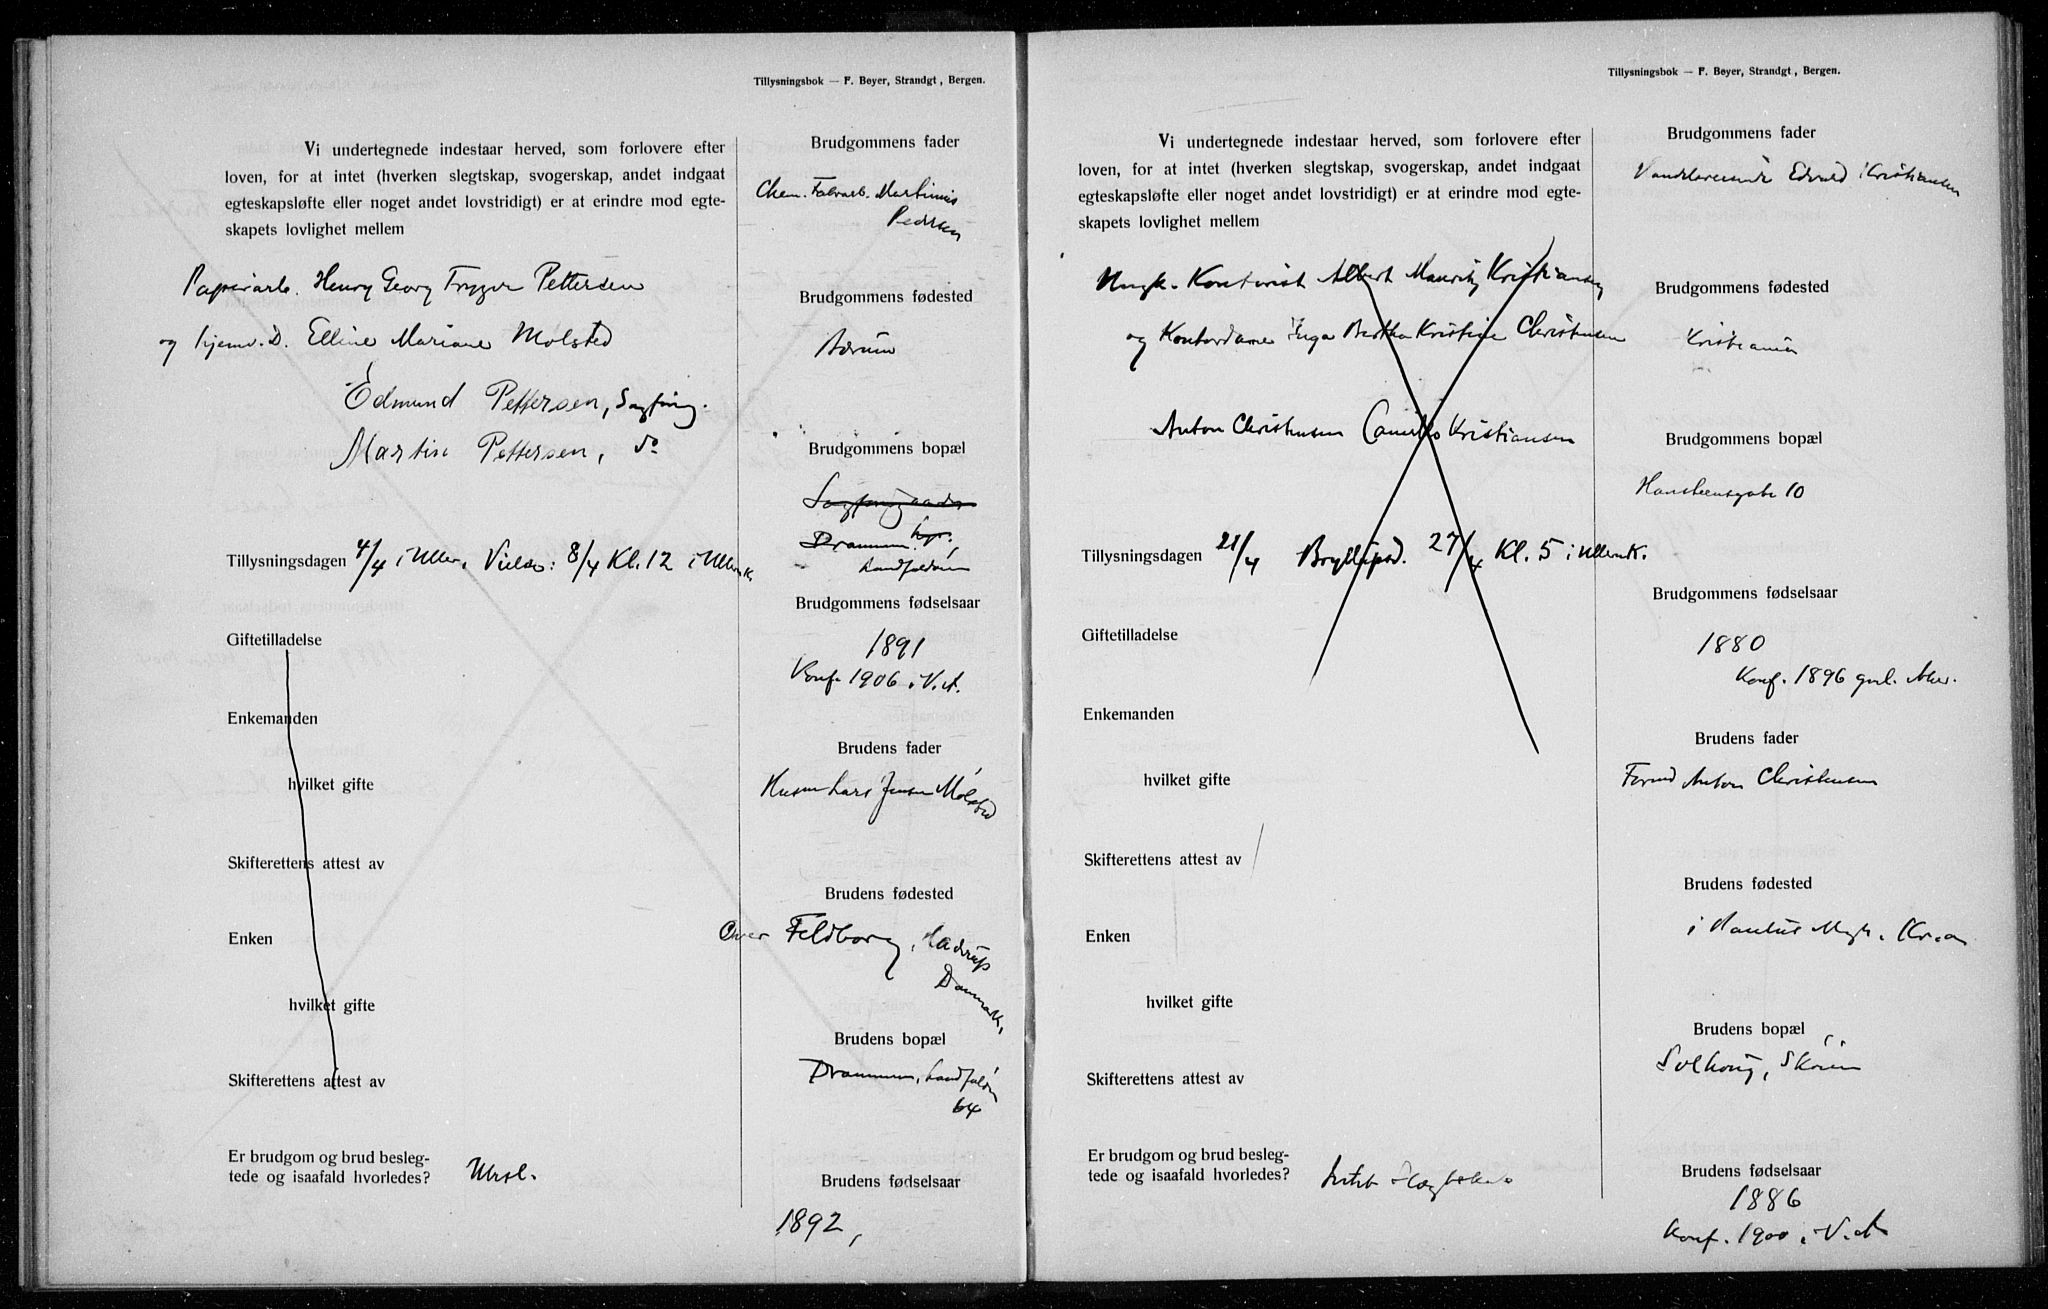 Tillysningsbok — F. Beyer, Strandgt, Bergen.
Vi undertegnede indestaar herved, som forlovere efter
loven, for at intet (hverken slegtskap, svogerskap, andet indgaat
egteskapsløfte eller noget andet lovstridigt) er at erindre mod egte-
skapets lovlighet mellem
Papirarb. Henry Georg Trygve Pettersen
og hjemv. D. Elline Mariane Mølsted
Edmund Pettersen, Sagfing.
Martin Pettersen, do
Tillysningsdagen 4/4 i Uller. Vielse: 8/4 Kl. 12 i Ullernk.
Giftetilladelse
Enkemanden
hvilket gifte
Skifterettens attest av
Enken
hvilket gifte
Skifterettens attest av
Er brudgom og brud besleg-
tede og isaafald hvorledes? Ubesl.
Brudgommens fader
Chem. Fabrarb. Martinius
Pedersen
Brudgommens fødested
Bærum
Brudgommens bopæl
Drammen
Landfaldøen
Brudgommens fødselsaar
1891
Konf. 1906 i V. A.
Brudens fader
Husm Lars Jensen Mølsted
Brudens fødested
Over Feldborg, Haderup
Danmark,
Brudens bopæl
Drammen, Landfaldøn
64
Brudens fødselsaar
1892,
Tillysningsbok — F. Beyer, Strandgt, Bergen.
Vi undertegnede indestaar herved, som forlovere efter
loven, for at intet (hverken slegtskap, svogerskap, andet indgaat
egteskapsløfte eller noget andet lovstridigt) er at erindre mod egte-
skapets lovlighet mellem
Ungk. Kontorist Albert Mauritz Kristiansen
og Kontordame Inga Bertha Kristine Christensen
Anton Christensen Camillo Kristiansen
Tillysningsdagen 21/4 Bryllupsd. 27/4 Kl. 5 i Ullernk.
Giftetilladelse
Enkemanden
hvilket gifte
Skifterettens attest av
Enken
hvilket gifte
Skifterettens attest av
Er brudgom og brud besleg-
tede og isaafald hvorledes? Intet Slegtskab
Brudgommens fader
Edvald Kristiansen
Brudgommens fødested
Kristiania
Brudgommens bopæl
Hansteensgate 10
Brudgommens fødselsaar
1880
Konf. 1896 gml. Aker.
Brudens fader
Formd Anton Christensen
Brudens fødested
i Paulus Mgh. Kr.a
Brudens bopæl
Solhaug, Skøien
Brudens fødselsaar
1886
Konf. 1900 i V. A